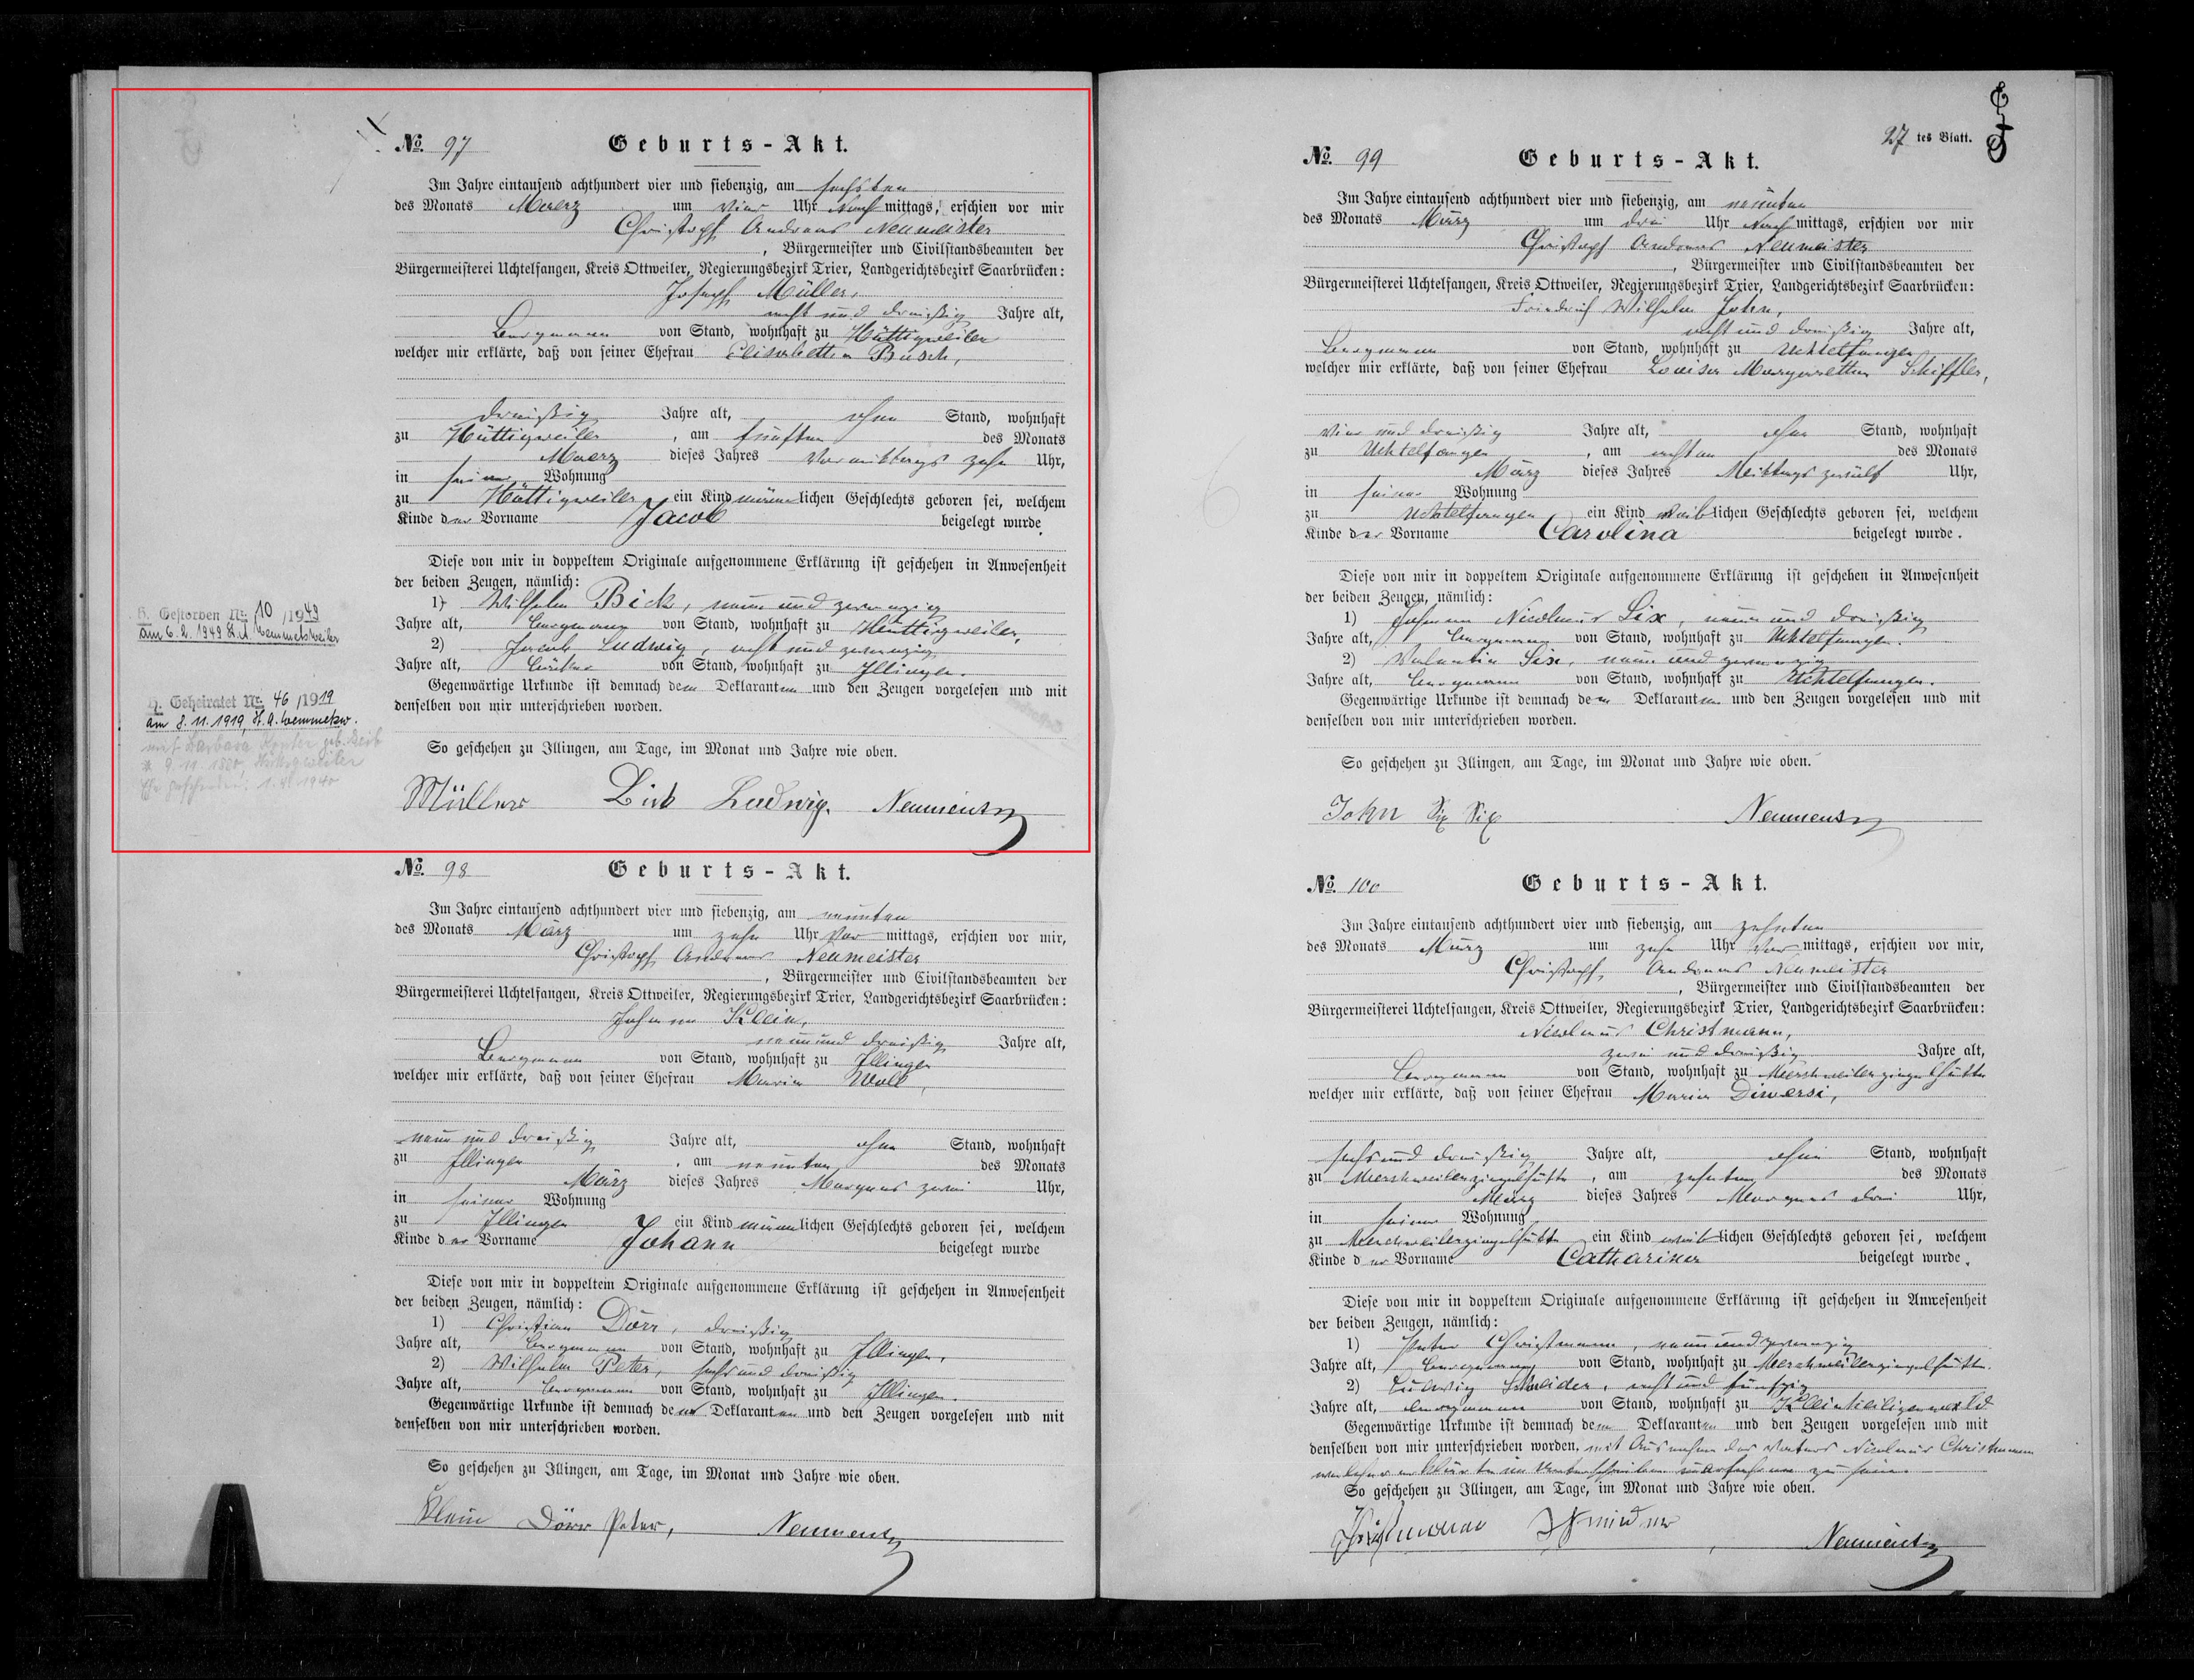 No. 97 Geburts-Akt.
Im Jahre eintausend achthundert vier und siebenzig, am sechsten
des Monats Maerz um vier Uhr Nachmittags, erschien vor mir
Christoph Andreas Neumeister
, Bürgermeister und Civilstandsbeamten der
Bürgermeisterei Uchtelfangen, Kreis Ottweiler, Regierungsbezirk Trier, Landgerichtsbezirk Saarbrücken:
Joseph Müller,
acht und dreißig Jahre alt,
Bergmann von Stand, wohnhaft zu Hüttigweiler
welcher mir erklärte, daß von seiner Ehefrau Elisabetha Busch,
dreißig Jahre alt, ohne Stand, wohnhaft
zu Hüttigweiler, am fünften des Monats
Maerz dieses Jahres Vormittags zehn Uhr,
in seiner Wohnung
zu Hüttigweiler ein Kind männlichen Geschlechts geboren sei, welchem
Kinde der Vorname Jacob beigelegt wurde.
Diese von mir in doppeltem Originale aufgenommene Erklärung ist geschehen in Anwesenheit
der beiden Zeugen, nämlich:
1) Wilhelm Bick, neun und zwanzig
Jahre alt, Bergmann von Stand, wohnhaft zu Hüttigweiler,
2) Jacob Ludwig, acht und zwanzig
Jahre alt, von Stand, wohnhaft zu Illingen.
Gegenwärtige Urkunde ist demnach dem Deklaranten und den Zeugen vorgelesen und mit
denselben von mir unterschrieben worden.
So geschehen zu Illingen, am Tage, im Monat und Jahre wie oben.
Müller Bick Ludwig. Neumeister
Gestorben Nr. 10/1949
am 6.2.1949 St.A. Wemmetsweiler
Geheiratet Nr. 46/1919
am 8.11.1919, St.A. Wemmetsw.
mit Barbara geb.
* 9.11.1880 Hüttigweiler
Ehe geschieden: 1940
No. 98 Geburts-Akt.
Im Jahre eintausend achthundert vier und siebenzig, am neunten
des Monats März um zehn Uhr Vormittags, erschien vor mir,
Christoph Andreas Neumeister
, Bürgermeister und Civilstandsbeamten der
Bürgermeisterei Uchtelfangen, Kreis Ottweiler, Regierungsbezirk Trier, Landgerichtsbezirk Saarbrücken:
Johann Klein,
neun und dreißig Jahre alt,
Bergmann von Stand, wohnhaft zu Illingen
welcher mir erklärte, daß von seiner Ehefrau Maria Woll,
neun und dreißig Jahre alt, ohne Stand, wohnhaft
zu Illingen, am neunten des Monats
März dieses Jahres Morgens zwei Uhr,
in seiner Wohnung
zu Illingen ein Kind männlichen Geschlechts geboren sei, welchem
Kinde der Vorname Johann beigelegt wurde
Diese von mir in doppeltem Originale aufgenommene Erklärung ist geschehen in Anwesenheit
der beiden Zeugen, nämlich:
1) Christian Dörr, dreißig
Jahre alt, Bergmann von Stand, wohnhaft zu Illingen,
2) Wilhelm Peter, sechs und dreißig
Jahre alt, Bergmann von Stand, wohnhaft zu Illingen.
Gegenwärtige Urkunde ist demnach dem Deklaranten und den Zeugen vorgelesen und mit
denselben von mir unterschrieben worden.
So geschehen zu Illingen, am Tage, im Monat und Jahre wie oben.
Klein Dörr Peter, Neumeister
27 tes Blatt.
No. 99 Geburts-Akt.
Im Jahre eintausend achthundert vier und siebenzig, am neunten
des Monats März um drei Uhr Nachmittags, erschien vor mir
Christoph Andreas Neumeister
, Bürgermeister und Civilstandsbeamten der
Bürgermeisterei Uchtelfangen, Kreis Ottweiler, Regierungsbezirk Trier, Landgerichtsbezirk Saarbrücken:
Friedrich Wilhelm John,
acht und dreißig Jahre alt,
Bergmann von Stand, wohnhaft zu Uchtelfangen
welcher mir erklärte, daß von seiner Ehefrau Louisa Margaretha Schiffler,
vier und dreißig Jahre alt, ohne Stand, wohnhaft
zu Uchtelfangen, am achten des Monats
März dieses Jahres Mittags zwölf Uhr,
in seiner Wohnung
zu Uchtelfangen ein Kind weiblichen Geschlechts geboren sei, welchem
Kinde der Vorname Carolina beigelegt wurde.
Diese von mir in doppeltem Originale aufgenommene Erklärung ist geschehen in Anwesenheit
der beiden Zeugen, nämlich:
1) Johann Nicolaus Six, neun und dreißig
Jahre alt, Bergmann von Stand, wohnhaft zu Uchtelfangen.
2) Valentin Six, neun und zwanzig
Jahre alt, Bergmann von Stand, wohnhaft zu Uchtelfangen.
Gegenwärtige Urkunde ist demnach dem Deklaranten und den Zeugen vorgelesen und mit
denselben von mir unterschrieben worden.
So geschehen zu Illingen, am Tage, im Monat und Jahre wie oben.
John Six Six Neumeister
No. 100 Geburts-Akt.
Im Jahre eintausend achthundert vier und siebenzig, am zehnten
des Monats März um zehn Uhr Vormittags, erschien vor mir,
Christoph Andreas Neumeister
, Bürgermeister und Civilstandsbeamten der
Bürgermeisterei Uchtelfangen, Kreis Ottweiler, Regierungsbezirk Trier, Landgerichtsbezirk Saarbrücken:
Nicolaus Christmann,
zwei und dreißig Jahre alt,
Bergmann von Stand, wohnhaft zu Merchweilerziegelhütte
welcher mir erklärte, daß von seiner Ehefrau Maria Diversi,
sechs und dreißig Jahre alt, ohne Stand, wohnhaft
zu Merchweilerziegelhütte, am zehnten des Monats
März dieses Jahres Morgens drei Uhr,
in seiner Wohnung
zu Merchweilerziegelhütte ein Kind weiblichen Geschlechts geboren sei, welchem
Kinde der Vorname Catharina beigelegt wurde.
Diese von mir in doppeltem Originale aufgenommene Erklärung ist geschehen in Anwesenheit
der beiden Zeugen, nämlich:
1) Peter Christmann, neun und zwanzig
Jahre alt, Bergmann von Stand, wohnhaft zu Merchweilerziegelhütte.
2) Ludwig Schneider, acht und fünfzig
Jahre alt, Bergmann von Stand, wohnhaft zu Kleinheiligenwald
Gegenwärtige Urkunde ist demnach dem Deklaranten und den Zeugen vorgelesen und mit
denselben von mir unterschrieben worden, mit Ausnahme des Vaters Nicolaus Christmann
welcher erklärte im Unterschreiben unerfahren zu sein.
So geschehen zu Illingen, am Tage, im Monat und Jahre wie oben.
Christmann Schneider Neumeister